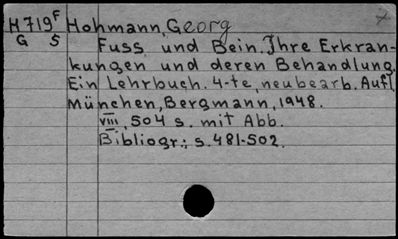 H719F Hohmann, Georg
G 5 Fuss und Bein. Ihre Erkran-
kungen und deren Behandlung.
Ein Lehrbuch. 4-te, neubearb. Aufl.
München, Bergmann, 1948.
VIII, 504 s. mit Abb.
Bibliogr.: s. 481-502.